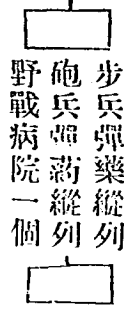 步兵彈藥縱列
砲兵彈藥縱列
野戰病院一個